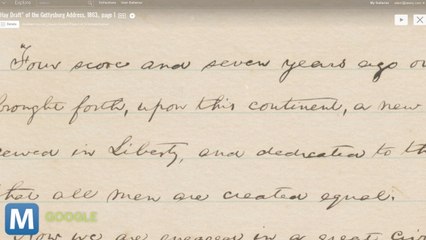 Explore
"Hay Draft" of the Gettysburg Address, 1863, page 1
Details
"Four score and seven years ago
brought forth, upon this continent, a new
ceived in Liberty, and dedicated to
that all men are created equal.
Now we are engaged in a great
M GOOGLE